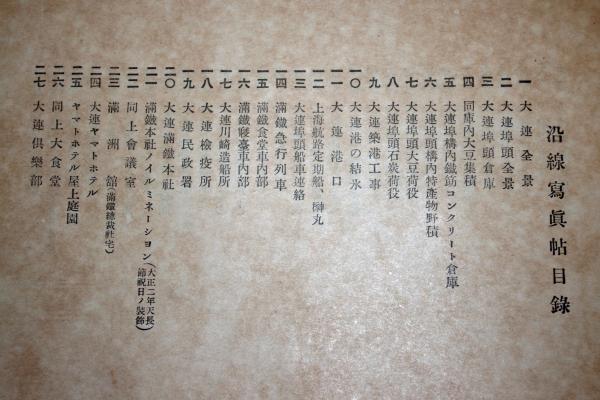 沿線寫眞帖目錄
一 大連全景
二 大連埠頭全景
三 大連埠頭倉庫
四 同庫內大豆集積
五 大連埠頭構內鐵筋コンクリート倉庫
六 大連埠頭構內特產物野積
七 大連埠頭大豆荷役
八 大連埠頭石炭荷役
九 大連築港工事
一〇 大連港の結氷
一一 大連港口
一二 上海航路定期船 榊丸
一三 大連埠頭船車連絡
一四 滿鐵急行列車
一五 滿鐵食堂車內部
一六 滿鐵寢臺車內部
一七 大連川崎造船所
一八 大連檢疫所
一九 大連民政署
二〇 大連滿鐵本社
二一 滿鐵本社ノイルミネーション(大正二年天長節祝日ノ裝飾)
二二 同上會議室
二三 滿洲館(滿鐵總裁社宅)
二四 大連ヤマトホテル
二五 ヤマトホテル屋上庭園
二六 同上大食堂
二七 大連俱樂部